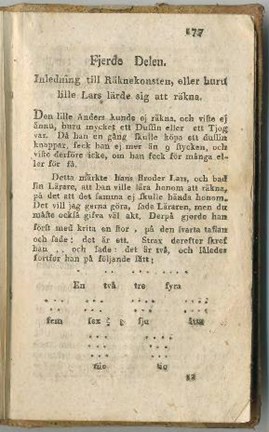 177
Fjerde Delen.
Inledning till Räknekonsten, eller huru
lille Lars lärde sig att räkna.
Den lille Anders kunde ej räkna, och visste ej
ännu, huru mycket ett Dussin eller ett Tjog
var. Då han en gång skulle köpa ett dussin
knappar, feck han ej mer än 9 stycken, och
visste derföre icke, om han feck för många el-
ler för få.
Detta märkte hans Broder Lars, och bad
sin Lärare, att han ville lära honom att räkna,
på det att det samma ej skulle hända honom.
Det vill jag gerna göra, sade Läraren, men du
måste också gifva väl akt. Derpå gjorde han
först med krita en stor . på den svarta taflan
och sade: det är ett. Strax derefter skref
han . . och sade: det är två, och således
fortfor han på följande sätt:
En två tre fyra
fem sex sju åtta
nio tio